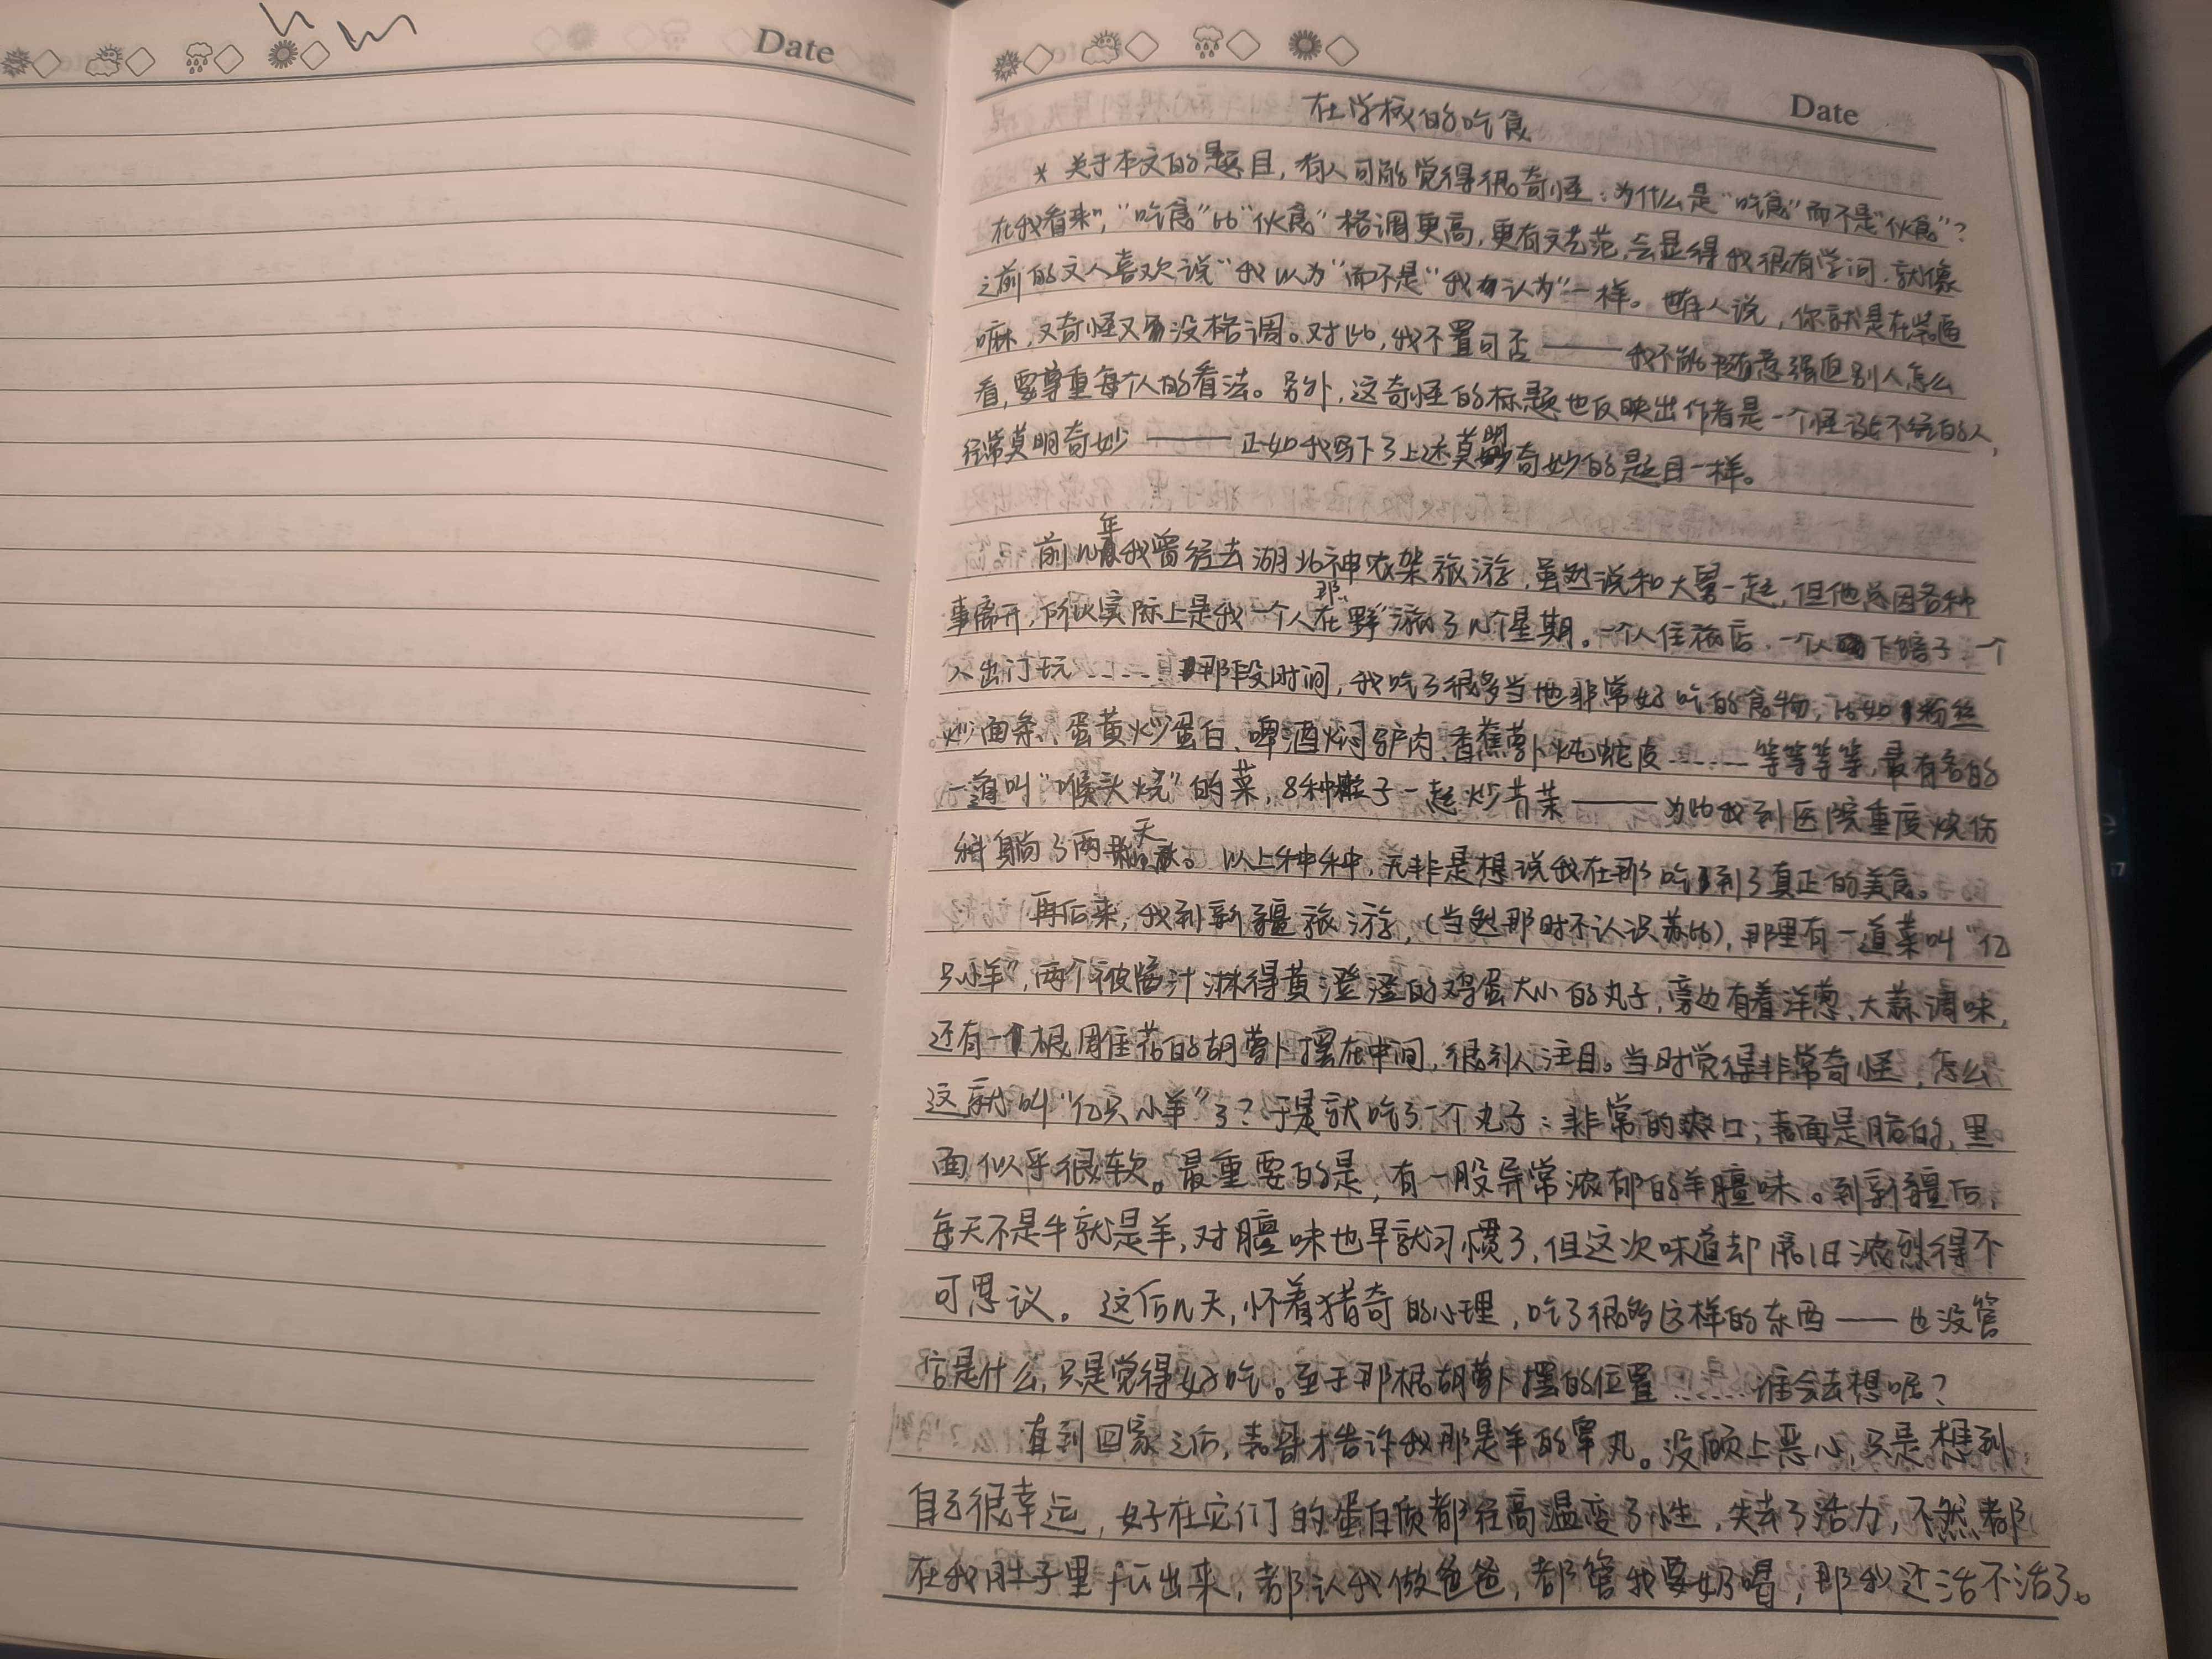 Date
Date
在学校的吃食
* 关于本文的题目，有人可能觉得很奇怪：为什么是“吃食”而不是“伙食”？
在我看来，“吃食”比“伙食”格调更高，更有文艺范，会显得我很有学问，就像
之前的文人喜欢说“我以为”而不是“我认为”一样。也有人说，你就是在装逼
嘛，又奇怪又没格调。对此，我不置可否——我不能随意强迫别人怎么
看，要尊重每个人的看法。另外，这奇怪的标题也反映出作者是一个怪诞不经的人，
经常莫明奇妙——正如我写下了上述莫明奇妙的题目一样。
前几年我曾经去湖北神农架旅游，虽然说和大舅一起，但他总因各种
事离开，所以实际上是我一个人在那“野”游了几个星期。一个人住旅店、一个人下馆子、一个
人出门玩……那段时间，我吃了很多当地非常好吃的食物，比如粉丝
炒面条、蛋黄炒蛋白、啤酒焖驴肉、香蕉萝卜炖蛇皮……等等等等，最有名的
一道叫“喉头烧”的菜，8种椒子一起炒芥茉——为此我到医院重度烧伤
科躺了两天。以上种种，无非是想说我在那吃到了真正的美食。
再后来，我到新疆旅游，（当然那时不认识苏比），那里有一道菜叫“亿
只小羊”，两个被酱汁淋得黄澄澄的鸡蛋大小的丸子，旁边有着洋葱、大蒜调味，
还有一根雕花的胡萝卜摆在中间，很引人注目。当时觉得非常奇怪，怎么
这就叫“亿只小羊”了？于是就吃了一个丸子：非常的爽口，表面是脆的，里
面似乎很软。最重要的是，有一股异常浓郁的羊膻味。到新疆后，
每天不是牛就是羊，对膻味也早就习惯了，但这次味道却依旧浓烈得不
可思议。这后几天，怀着猎奇的心理，吃了很多这样的东西——也没管
它是什么，只是觉得好吃。至于那根胡萝卜摆的位置……谁会去想呢？
直到回家之后，表哥才告诉我那是羊的睾丸。没顾上恶心，只是想到
自己很幸运，好在它们的蛋白质都经高温变了性，失去了活力，不然都
在我肚子里孵出来，都认我做爸爸，都管我要奶喝，那我还活不活了。